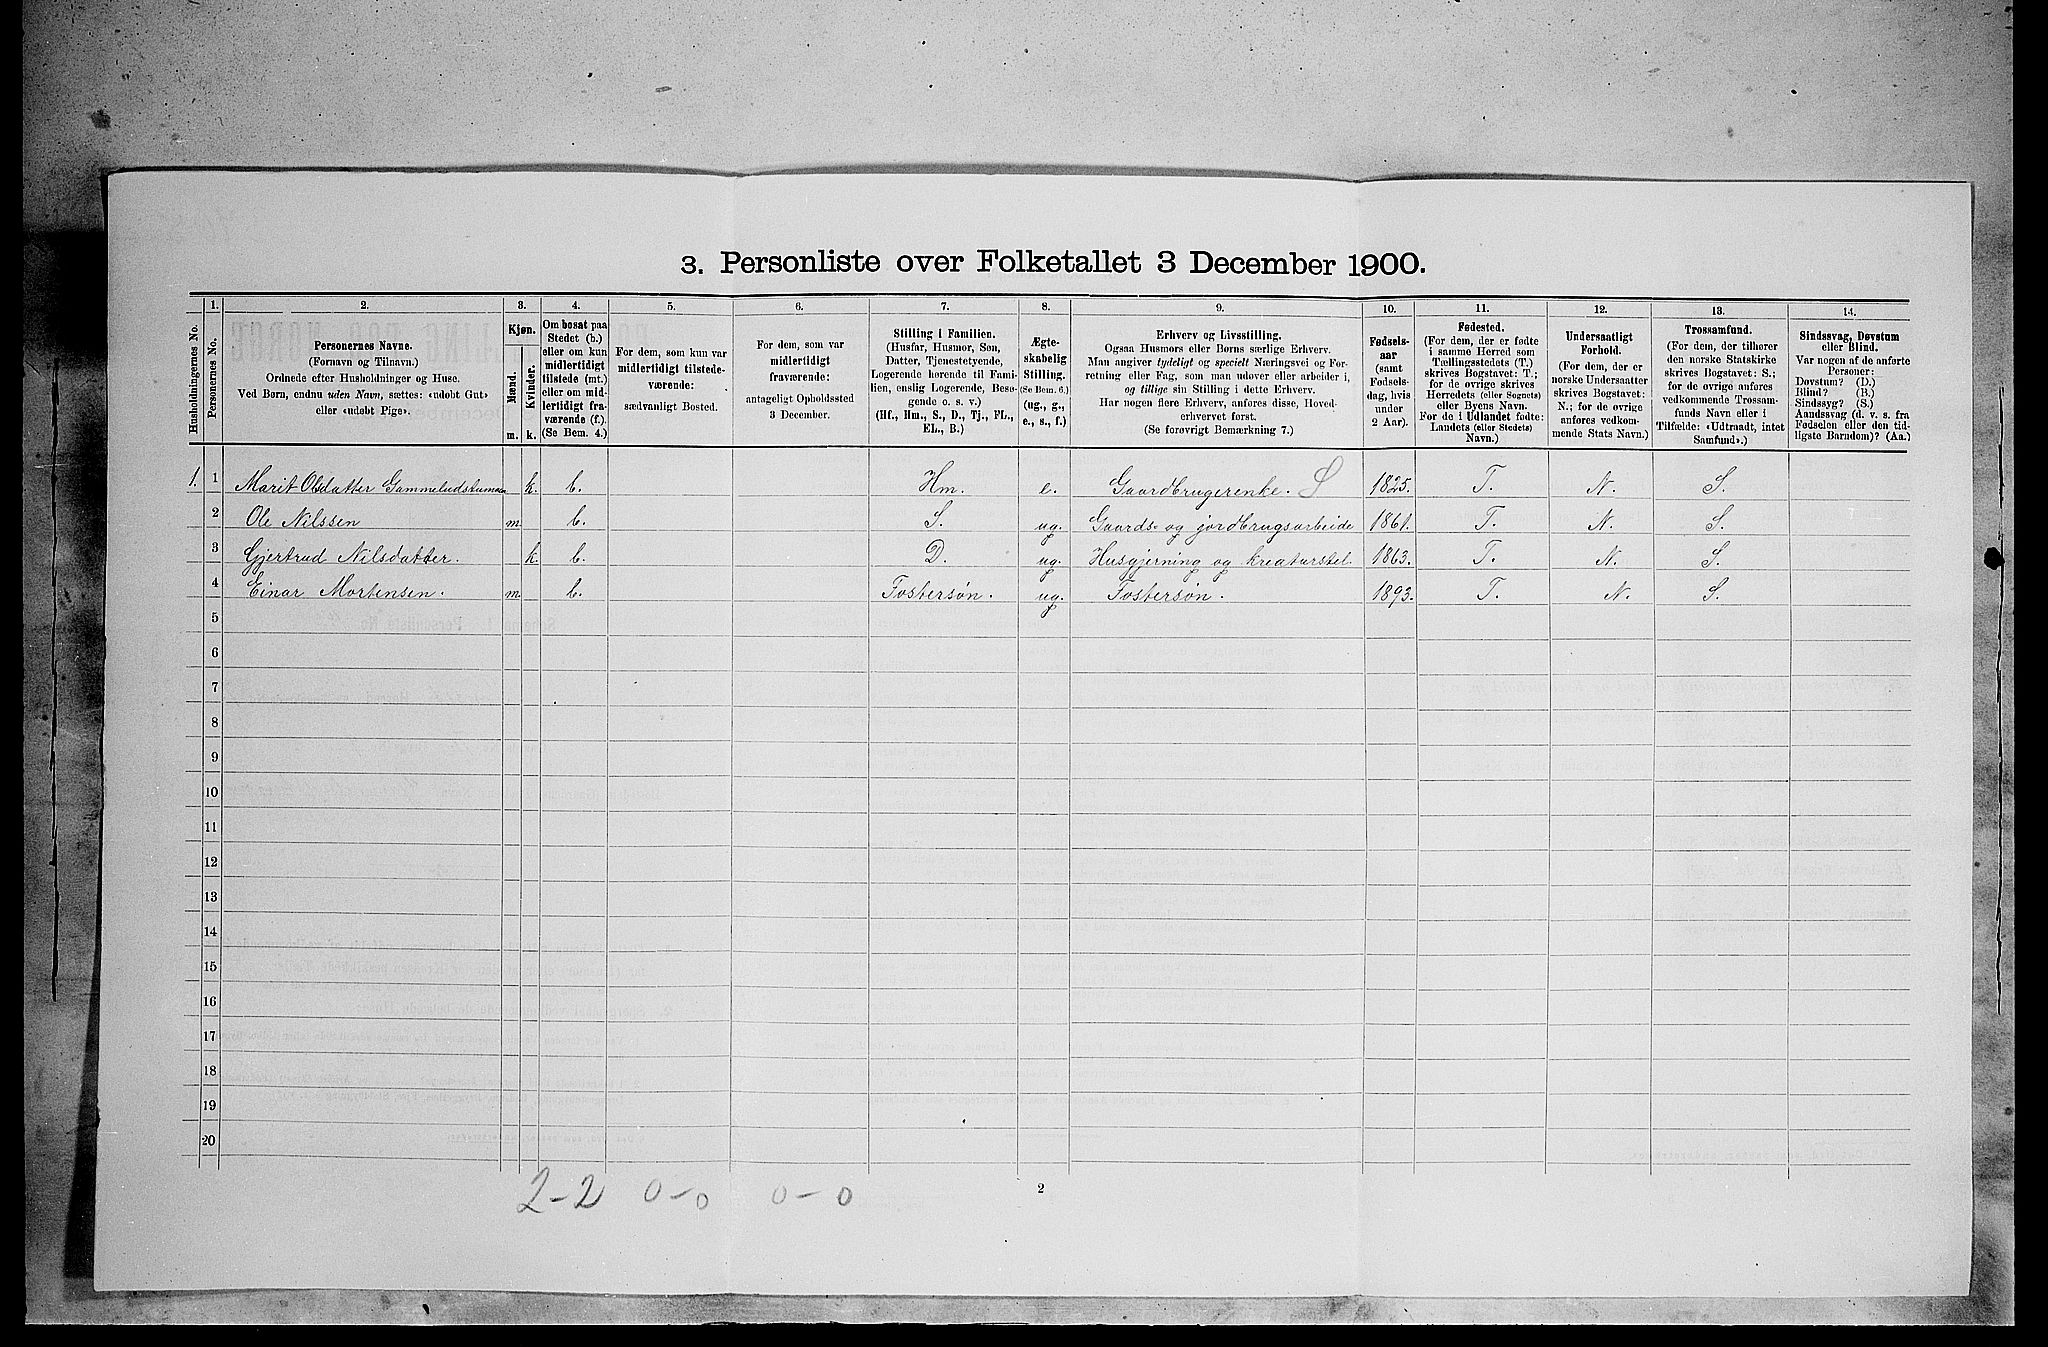 3. Personliste over Folketallet 3 December 1900.
Husholdningernes No.
1.
Personernes No.
2.
Personernes Navne.
(Fornavn og Tilnavn.)
Ordnede efter Husholdninger og Huse.
Ved Børn, endnu uden Navn, sættes: «udøbt Gut»
eller «udøbt Pige».
3.
Kjøn.
Mænd.
Kvinder.
m.
k.
4.
Om bosat paa
Stedet (b.)
eller om kun
midlertidigt
tilstede (mt.)
eller om mid-
lertidigt fra-
værende (f.).
(Se Bem. 4.)
5.
For dem, som kun var
midlertidigt tilstede-
værende:
sædvanligt Bosted.
6.
For dem, som var
midlertidigt
fraværende:
antageligt Opholdssted
3 December.
7.
Stilling i Familien.
(Husfar, Husmor, Søn,
Datter, Tjenestetyende,
Logerende hørende til Fami-
lien, enslig Logerende, Besø-
gende o. s. v.)
(Hf., Hm., S., D., Tj., FL.,
EL., B.)
8.
Ægte-
skabelig
Stilling.
(Se Bem. 6.)
(ug., g.,
e., s., f.)
9.
Erhverv og Livsstilling.
Ogsaa Husmors eller Børns særlige Erhverv.
Man angiver tydeligt og specielt Næringsvei og For-
retning eller Fag, som man udøver eller arbeider i,
og tillige sin Stilling i dette Erhverv.
Har nogen flere Erhverv, anføres disse, Hoved-
erhvervet først.
(Se forøvrigt Bemærkning 7.)
10.
Fødsels-
aar
(samt
Fødsels-
dag, hvis
under
2 Aar).
11.
Fødested.
(For dem, der er fødte
i samme Herred som
Tællingsstedets (T.)
skrives Bogstavet: T.;
for de øvrige skrives
Herredets (eller Sognets)
eller Byens Navn.
For de i Udlandet fødte:
Landets (eller Stedets)
Navn.)
12.
Undersaatligt
Forhold.
(For dem, der er
norske Undersaatter
skrives Bogstavet:
N.; for de øvrige
anføres vedkom-
mende Stats Navn.)
13.
Trossamfund.
(For dem, der tilhører
den norske Statskirke
skrives Bogstavet: S.;
for de øvrige anføres
vedkommende Trossam-
funds Navn eller i
Tilfælde: «Udtraadt, intet
Samfund».)
14.
Sindssvag, Døvstum
eller Blind.
Var nogen af de anførte
Personer:
Døvstum? (D.)
Blind? (B.)
Sindssyg? (S.)
Aandssvag (d. v. s. fra
Fødselen eller den tid-
ligste Barndom)? (Aa.)
1. 1 Marit Olsdatter k. b. Hm. e. Gaardbrugerenke. S 1825. T. N. S.
2 Ole Nilssen m. b. S. ug. Gaards- og jordbrugsarbeide 1861. T. N. S.
3 Gjertrud Nilsdatter. k. b. D. ug. Husgjerning og kreaturstel. 1863. T. N. S.
4 Einar Mortensen. m. b. Fostersøn. ug. Fostersøn. 1893. T. N. S.
5
6
7
8
9
10
11
12
13
14
15
16
17
18
19
20
2-2 0-0 0-0
2